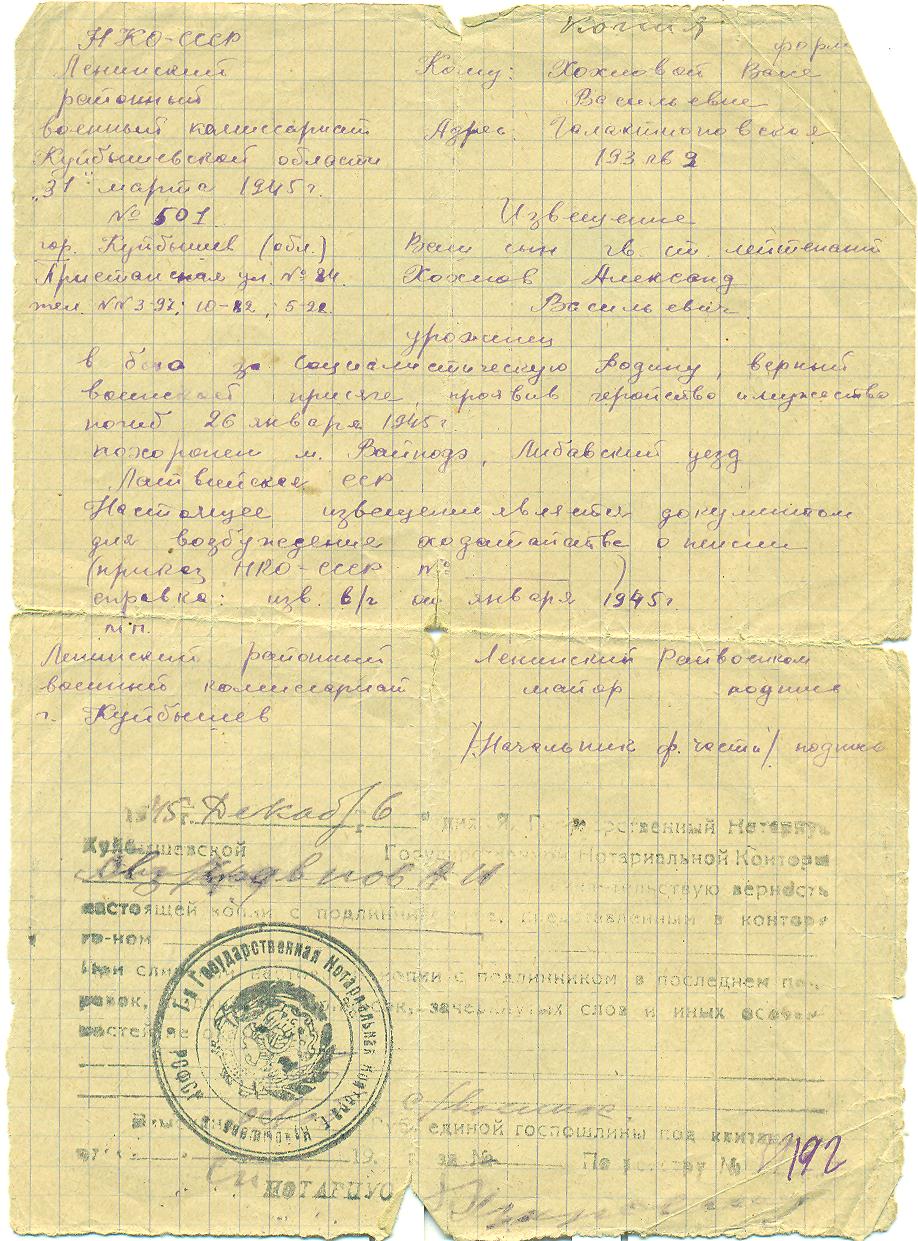 Копия
форм
НКО-СССР
Ленинский
районный
военный комиссариат
Куйбышевской области
"31" марта 1945г.
№ 501
гор. Куйбышев (обл.)
Пристанская ул. № 24
тел. NN 3-97; 10-82; 5-22
Кому: Хохловой
Васильевне
Адрес Галактионовская
193 кв 9
Извещение
Ваш сын гв. ст. лейтенант
Хохлов Александ
Васильевич
урожинец
в бою за социалистическую Родину, верный
присяге, проявив геройство и мужество
погиб 26 января 1945г.
похоронен м. Вайнодэ, Либавский уезд
Латвийская ССР
Настоящее извещение является документом
для возбуждение о пенсии
(приказ НКО-СССР № )
справка: изв. в/ч от января 1945г.
мп.
Ленинский районный
военный комиссариат
г. Куйбышев
Ленинский Райвоенком
майор подпись
/Начальник ф. части/ подпись
1945г. Декаб 6 дня Я, Государственный Нотариус
Куйбышевской Государственной Нотариальной Конторы
свидетельствую верность
настоящей копии с подлинником, представленным в контору
гр-ном
При сличении копии с подлинником в последнем по-
зачеркнутых слов и иных особен-
ностей не
единой госпошлины под квитанц
19 г. за № По реестру № 192
НОТАРИУС
1-я Государственная Нотариальная Контора г. Куйбышева РСФСР